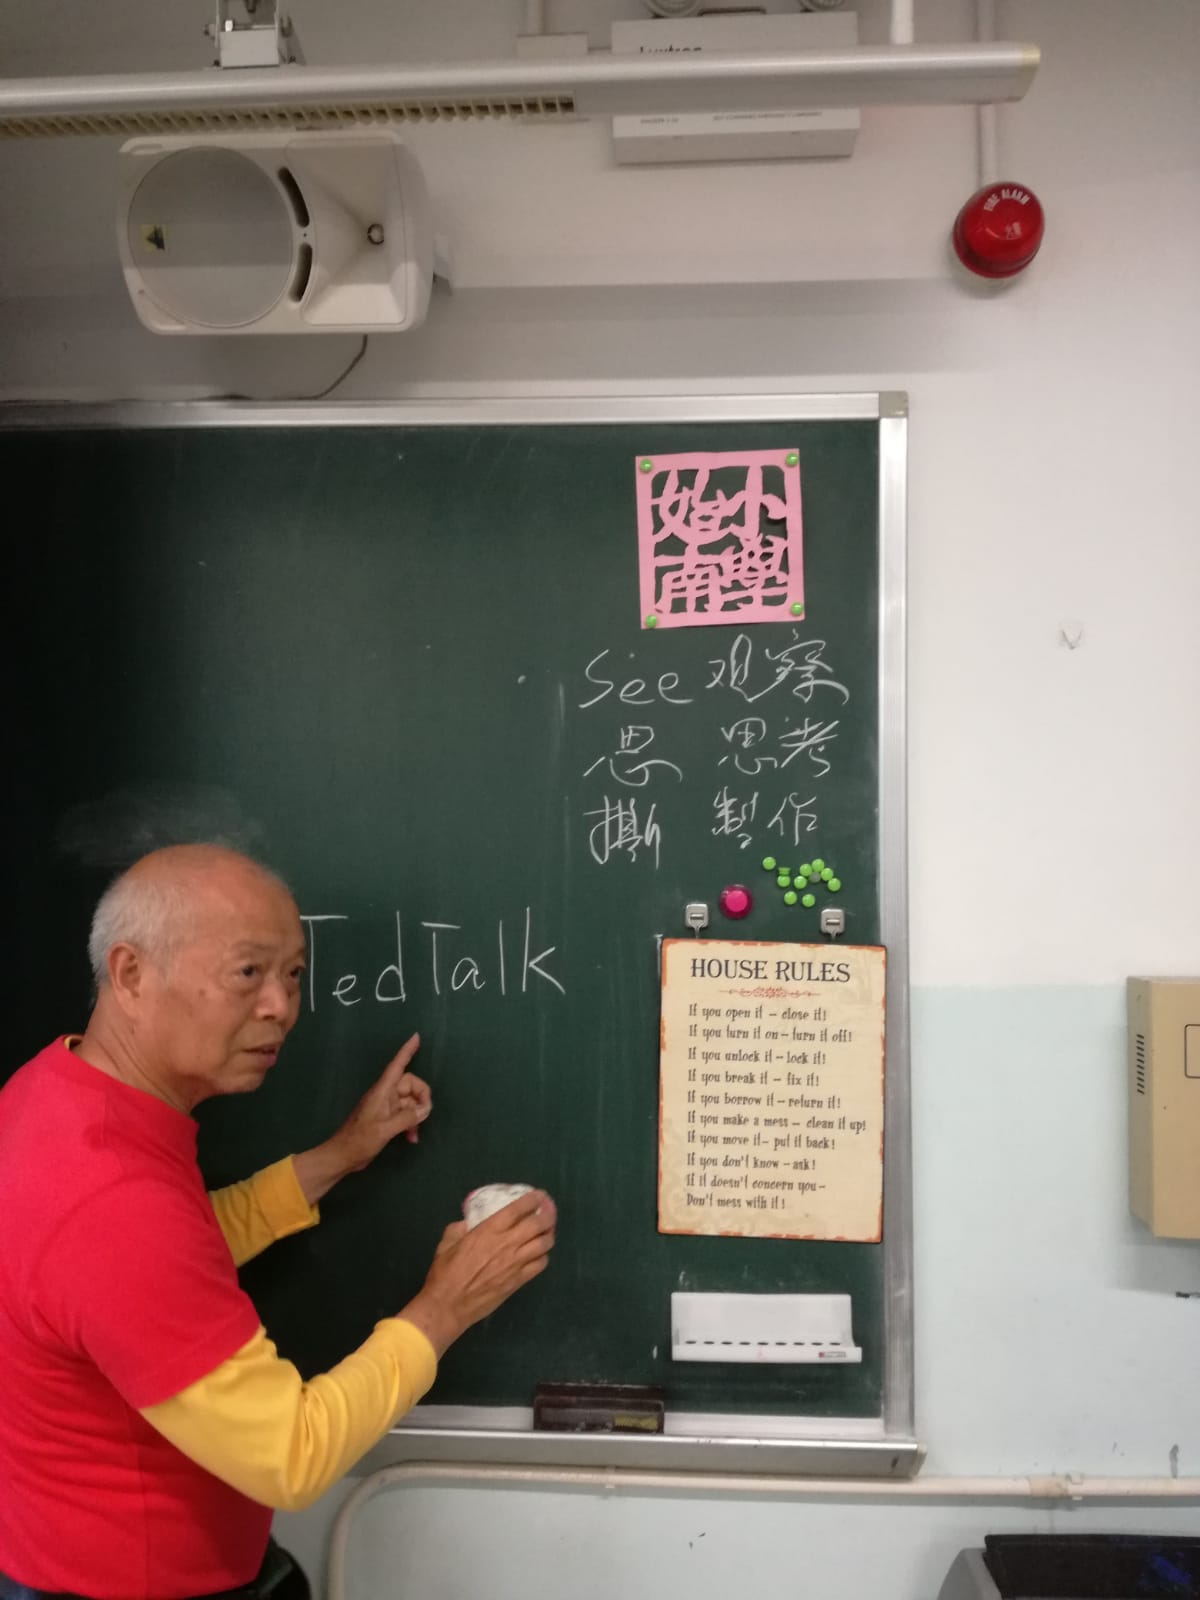 FIRE ALARM
小學
始南
See 观察
思 思考
撕 製作
TedTalk
HOUSE RULES
If you open it – close it!
If you turn it on – turn it off!
If you unlock it – lock it!
If you break it – fix it!
If you borrow it – return it!
If you make a mess – clean it up!
If you move it – put it back!
If you don't know – ask!
If it doesn't concern you –
Don't mess with it!